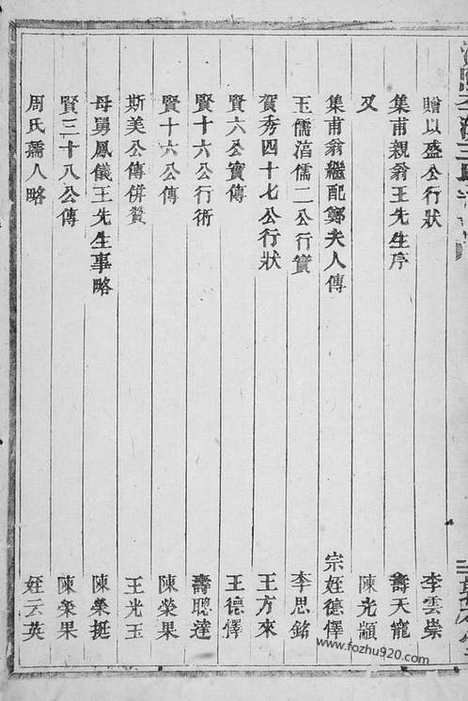 贈以盛公行狀 李雲崇
集甫親翁王先生序 壽天寵
又 陳光顓
集甫翁繼配鄭夫人傳 宗姪德懌
玉儒渲儒二公行實 李思銘
賀秀四十七公行狀 王方來
賢六公實傳 王德懌
賢十六公行術 壽聰達
賢十六公傳 陳榮果
斯美公傳併贊 王光玉
母舅鳳儀王先生事略 陳榮挺
賢三十八公傳 陳榮果
周氏孺人略 姪云英
www.fozhu920.com